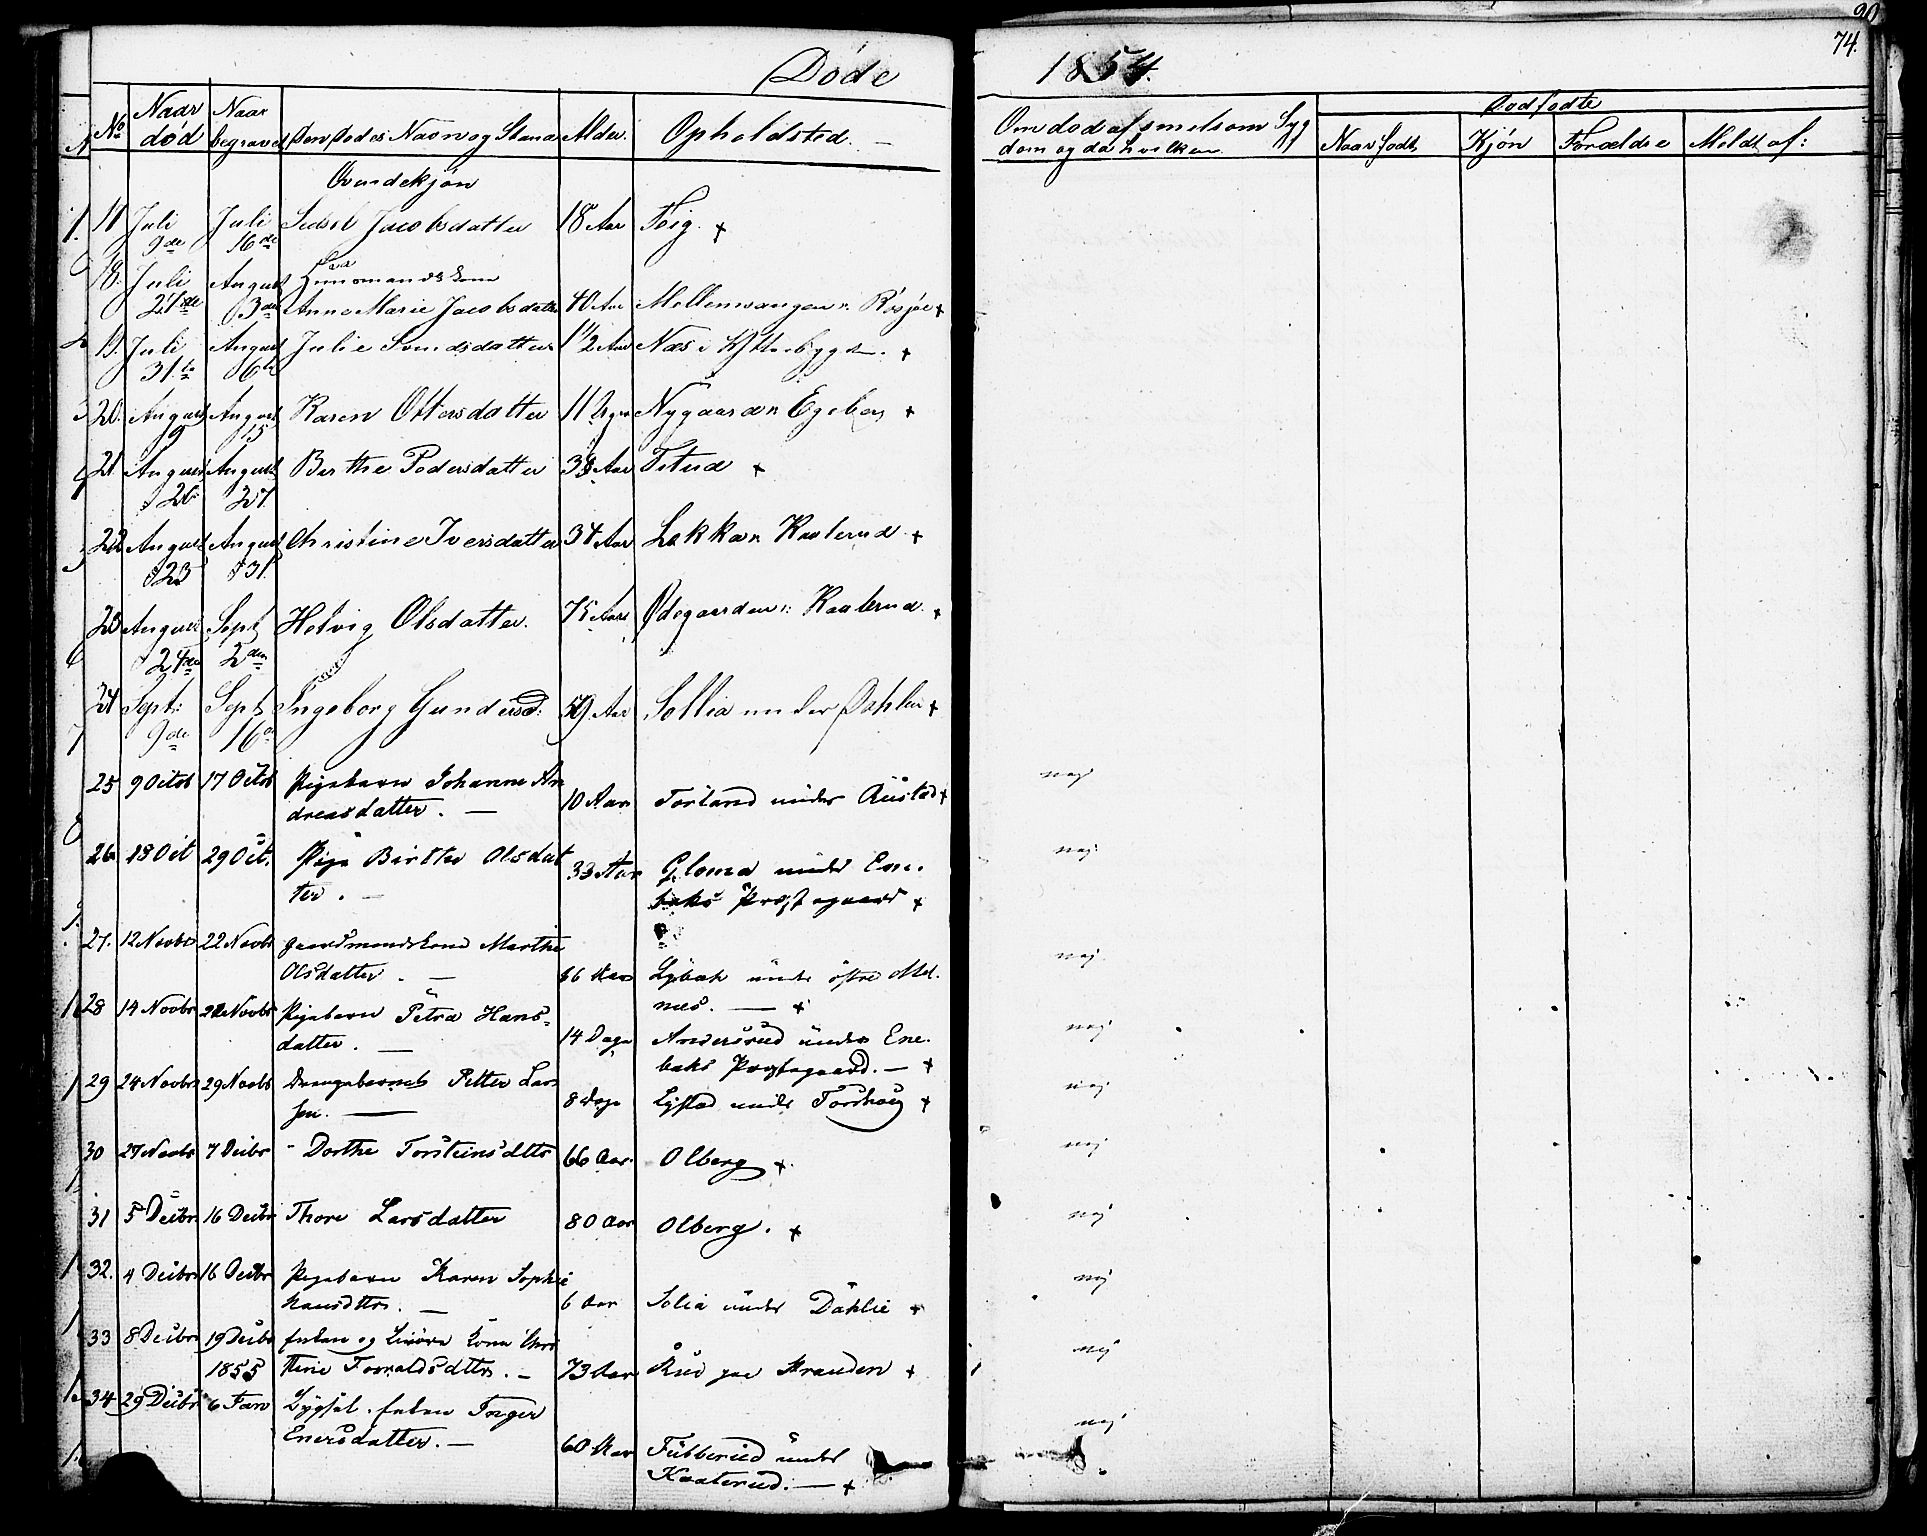 90
74.
Døde 1854.
No Naar død Naar begravet Den Dødes Navn og Stand Alder. Opholdsted. Om død af smitsom Syg
dom og da hvilken. Dødfødte
Naar født Kjøn Forældre Meldt af:
Qvindekjøn
17 Juli 9de Juli 16de Sidsel Jacobsdatter 18 Aar Teig. +
18. Juli 24de August 3de Huusmandskone
Anne Marie Jacobsdatter 40 Aar Mellemvangen u. Røsjøe +
19. Juli 31te August 6te Julie Svendsdatter 1 1/2 Aar Næs i Ytterbygden. +
20. August 9 August 15 Karen Ottersdatter 11 Uger Nygaard u. Egeberg +
21 August 20 August 27 Berthe Pedersdatter 38 Aar Tstad +
22 August 23 August 31 Christine Iversdatter 34 Aar Løkka u. Kaalerud +
23 August 24de Sept 2den Helvig Olsdatter. 75 Aar Ødegaarden u. Kaalerud. +
24 Sept: 9de Sept 16de Ingeborg Gundersd: 59 Aar Sollia under Dahlen +
25 9 Octob 17 Octob Pigebarn Johanne An
dreasdatter. — 10 Aar Torland under Rustad + nej
26 18 Oct 29 Oct. Pige Birthe Olsdat
ter. — 33 Aar Gloma under Ene.
baks Prestegaard + nej
27. 12 Novbr 22 Novbr Gaardmandskone Marthe
Olsdatter. — 66 Aar Lybæk under østre Mel.
næs. — + nej
28 14 Novbr 22 Novbr Pigebarn Petra Hans-
datter. — 14 Dage Anderstrud under Ene.
baks Prestegaard. — + nej
29 24 Novbr 29 Novbr Drengebarnet Petter Lar
sen. — 8 Dage Lystad under Torshaug + nej
30 27 Novbr 7 Decbr - Dorthe Torsteinsdttr 66 Aar. Olberg +. nej
31 5 Decbr 16 Decbr Thore Larsdatter 80 Aar Olberg. + nej
32. 4 Decbr 16 Decbr Pigebarn Karen Sophie
Hansdttr. — 6 Aar Solia under Dahlie + nej
33 8 Decbr 19 Decbr Enken og Kone Chri
stine Torvaldsdttr. — 73 Aar Rud paa Stranden + nej
34 29 Decbr 1855 6 Jan Lægsl. Enken Inger
Enersdatter. — 60 Aar Tubberud under
Kaalerud. — + nej